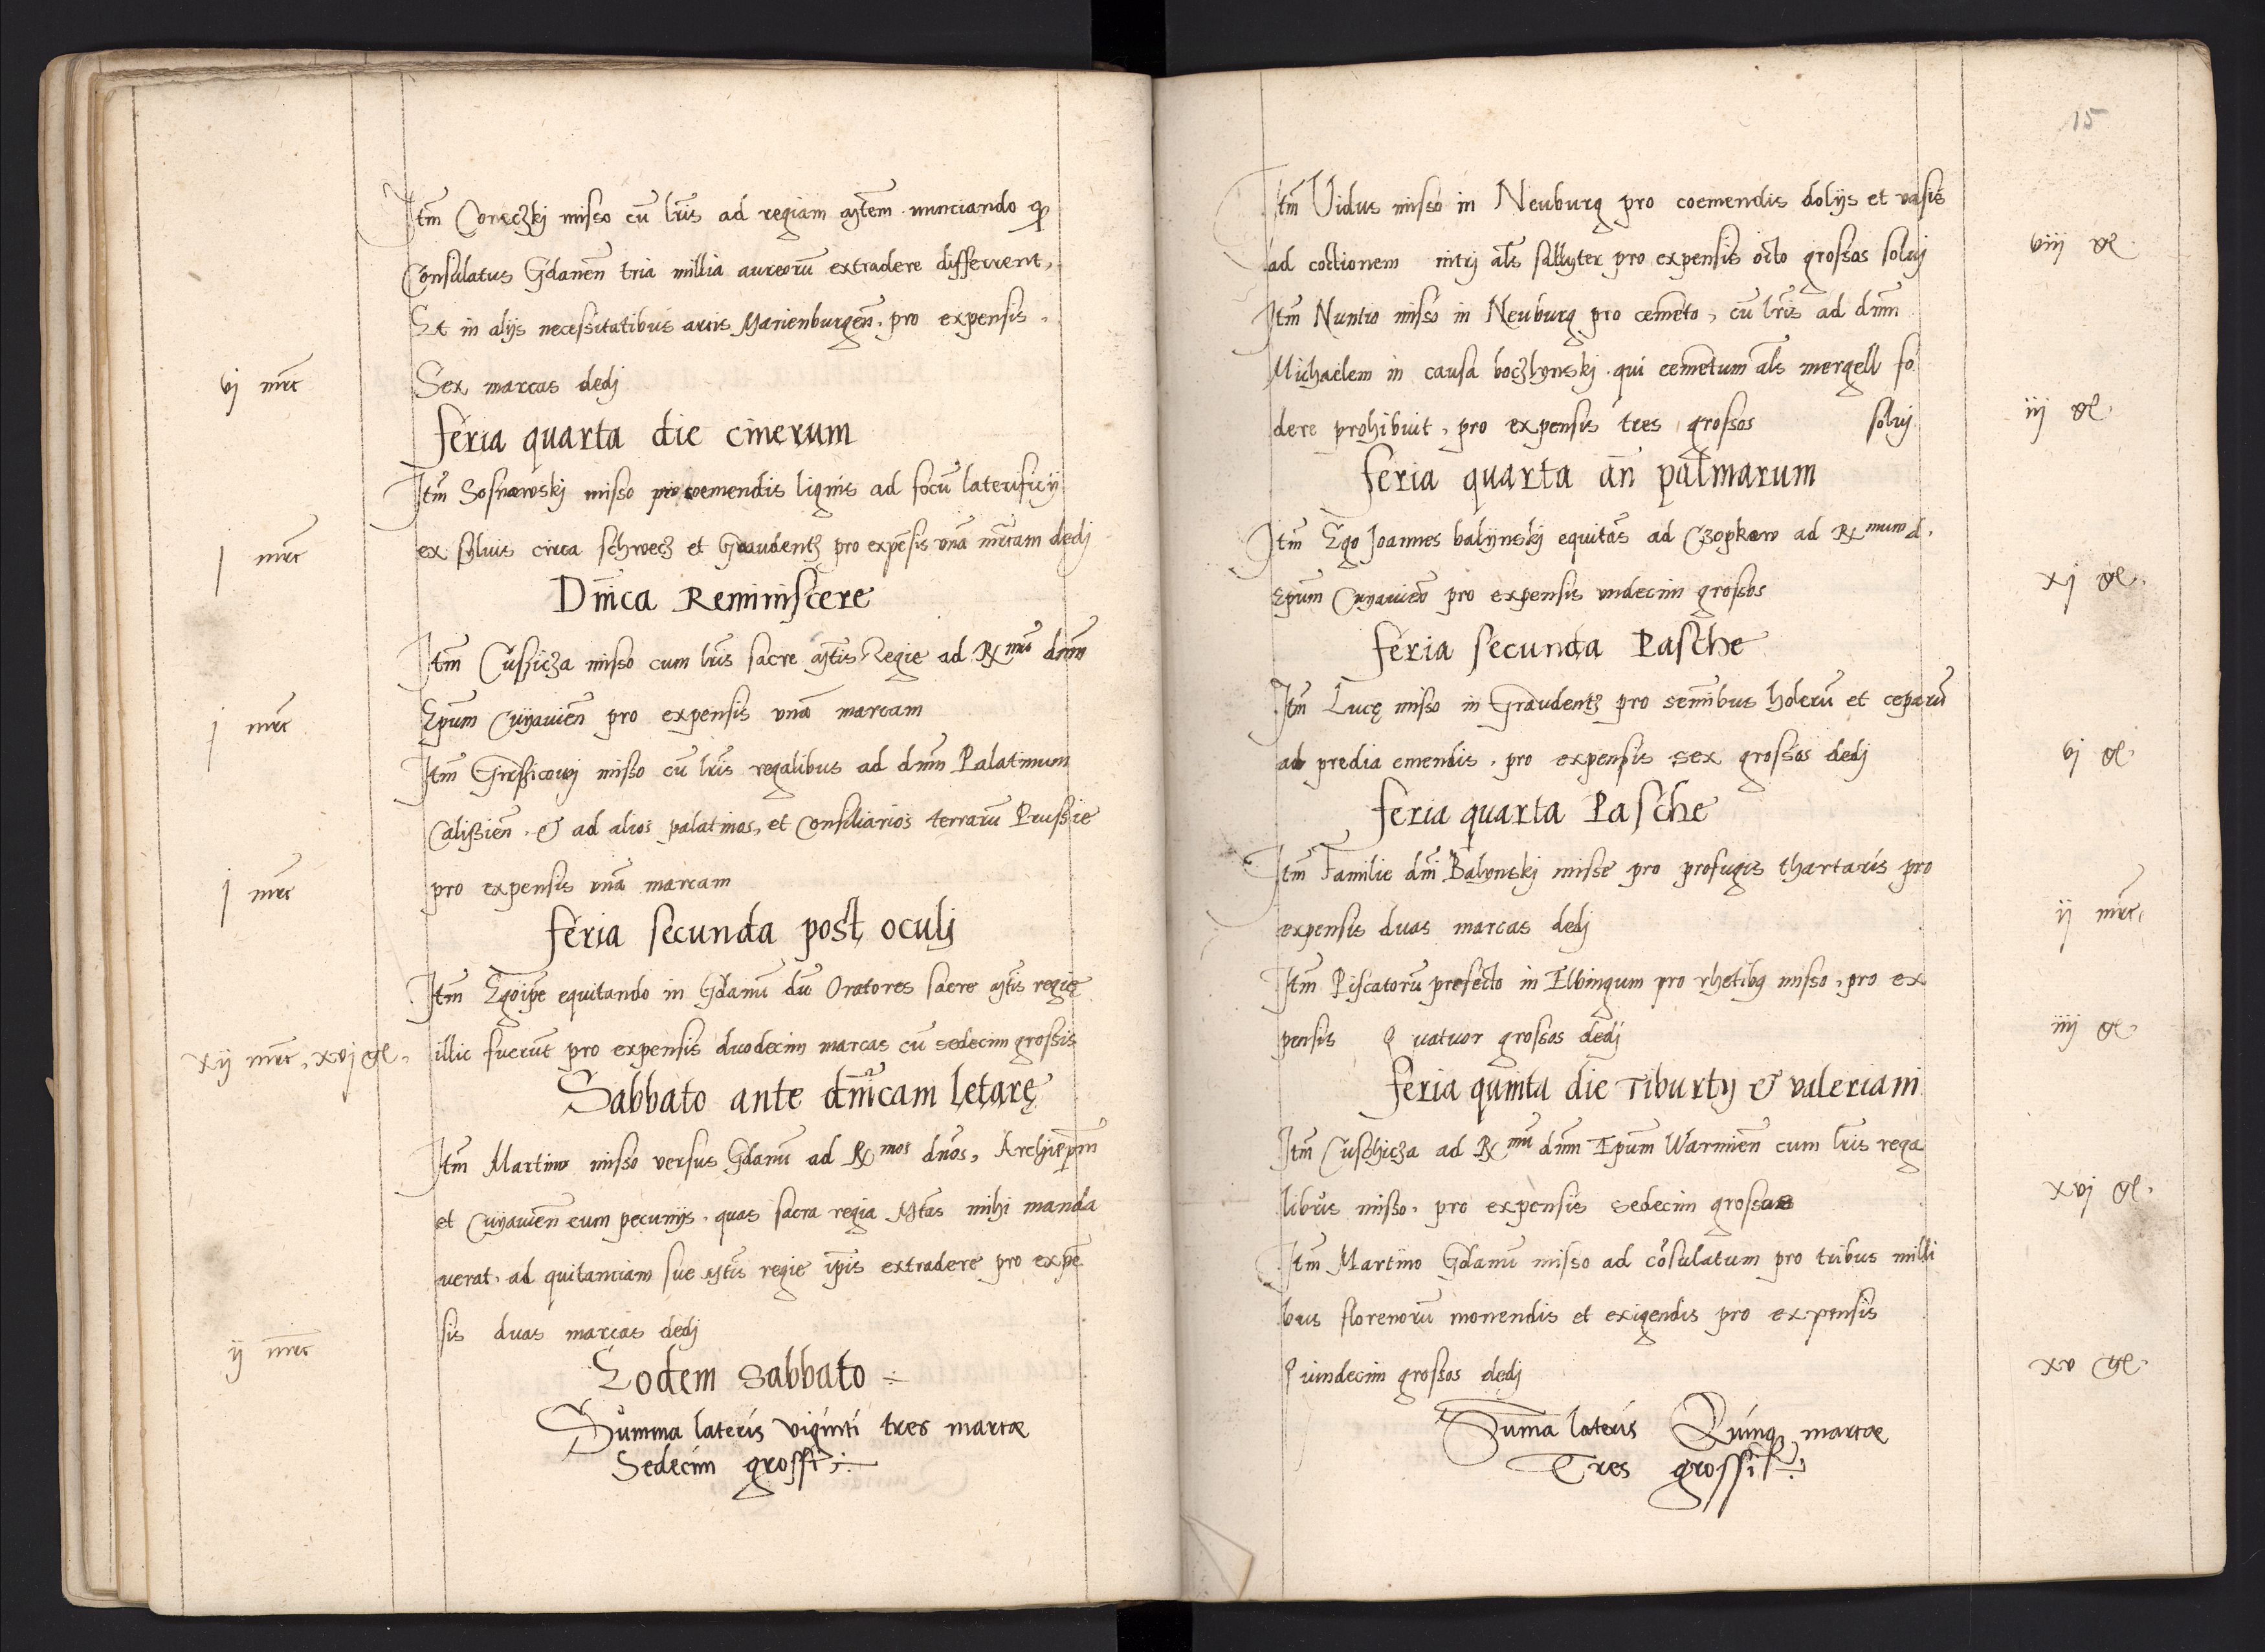 Itm̄ Coreczkj misso cū lr̄is ad regiam mtem nunciando ꝙ
Consulatus Gdanen̄ tria millia aureorū extradere differrent,
Et in alijs necessitatibus arcis Marienburgen̄. pro expensis.
vj mrc̄ Sex marcas dedj
feria quarta die cinerum
Itm̄ Sosnawskj misso pro coemendis lignis ad focū laterificij
j mrc̄ ex syluis circa schwecz et Graudentz pro expēsis vnā mrcam dedj
Dn̄ica Reminiscere
Itm̄ Cussicza misso cum lr̄is sacre mtis Regie ad Rmū dnm̄
j mrc̄ Epum̄ Cuyauien̄ pro expensis vnā marcam
Itm̄ misso cū lr̄is regalibus ad dnm̄ Palatinum
Calissien̄. & ad alios palatinos, et Consiliarios terrarū Prussie
j mrc̄ pro expensis vnā marcam
feria secunda post oculj
Itm̄ Egoipē equitando in Gdanū dū Oratores sacre mtis regię
xij mrc̄, xvj gℓ. illic fuerūt pro expensis duodecim marcas cū sedecim grossis
Sabbato ante dn̄icam lętarę
Itm̄ Martino misso versus Gdanū ad Rmos dnōs, Archiepm̄
et Cuyauien̄ cum pecunijs. quas sacra regia Mtas mihi manda
uerat. ad quitanciam sue mtis regie ip̄is extradere pro expē
ij mrc̄ sis duas marcas dedj
Eodem Sabbato
Summa lateris viginti tres marcæ
Sedecim grossi
15
Itm̄ Vidus misso in Neuburg pro coemendis dolijs et vasis
ad coctionem nitrj als̄ sallyter pro expensis octo grossos soluj viij gℓ.
Itm̄ Nuntio misso in Neuburg pro cemēto, cū lr̄is ad dnm̄
Michaelem in causa boczlynskj. qui cemētum als̄ mergell fo
dere prohibuit, pro expensis tres grossos soluj iij gℓ.
feria quarta an̄ palmarum
Itm̄ Ego Joannes balijnskj equitās ad Czopkaw ad Rmum d.
Epum̄ Cuyauien̄ pro expensis vndecim grossos xj gℓ.
feria secunda Pasche
Itm̄ Lucę misso in Graudentz pro seminibus holerū et ceparū
ad predia emendis, pro expensis sex grossos dedj vj gℓ.
feria quarta Pasche
Itm̄ Familie dnī Balynskj misse pro profugis thartaris pro
expensis duas marcas dedj ij mrc̄.
Itm̄ Piscatorū prefecto in Elbingum pro rhetibꝯ misso, pro ex
pensis Quatuor grossos dedij iiij gℓ.
feria quinta die Tiburtij & valeriani
Itm̄ Cuschicza ad Rmū dnm̄ Epum̄ Warmien̄ cum lr̄is rega
libus misso, pro expensis sedecim grossos xvj gℓ.
Itm̄ Martino Gdanū misso ad cōsulatum pro tribus milli
bus florenorū monendis et exigendis pro expensis
Quindecim grossos dedj xv gℓ.
Summa lateris Quinqꝫ marcæ
Tres grossi